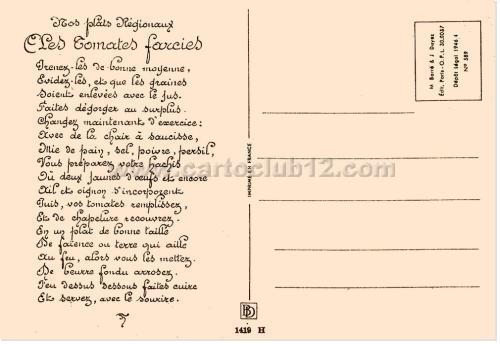 Nos plats Régionaux
Les Tomates farcies
Prenez-les de bonne moyenne,
Evidez-les, et que les graines
Soient enlevées avec le jus.
Faites dégorger au surplus.
Changez maintenant d'exercice:
Avec de la chair à saucisse,
Mie de pain, sel, poivre, persil,
Vous préparez votre hachis
Où deux jaunes d'œufs et encore
Ail et oignon s'incorporent
Puis, vos tomates remplissez,
Et de chapelure recouvrez.
En un plat de bonne taille
De faïence ou terre qui aille
Au feu, alors vous les mettez.
De beurre fondu arrosez.
Feu dessus dessous faites cuire
Et servez, avec le sourire.
IMPRIMÉ EN FRANCE
M. Barré & J. Dayez
Édit. Paris-O.P.L. 30.0037
Dépôt légal 1946
N° 589
BD
1419 H
www.cartoclub12.com